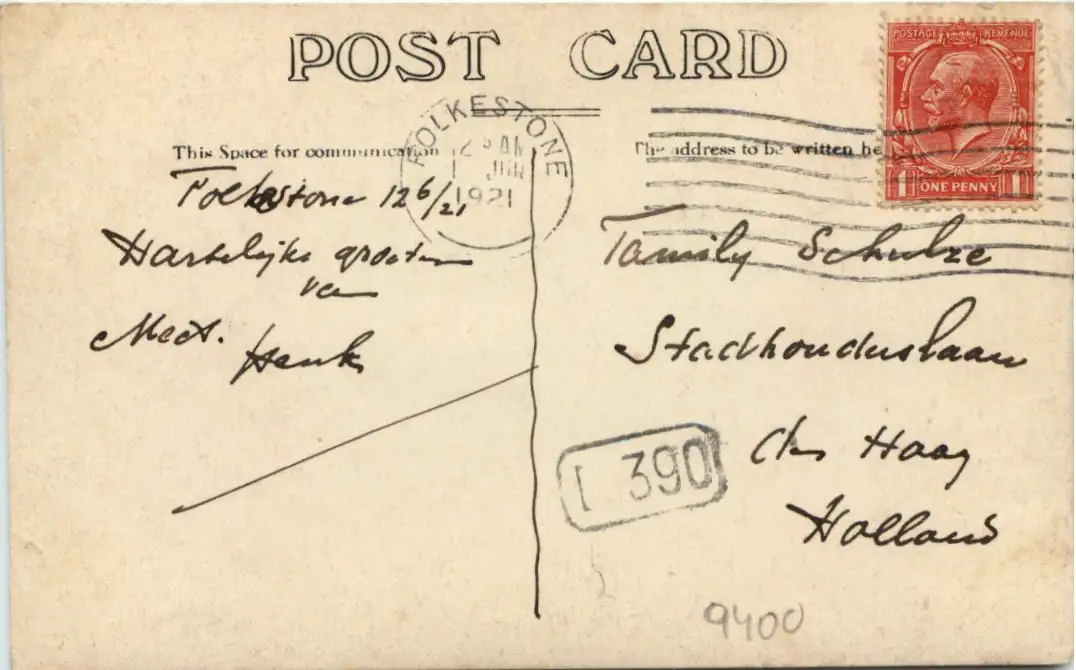 POST CARD
This Space for communication
The address to be written he
FOLKESTONE
12 AM
1 JUN
1921
POSTAGE REVENUE
1 ONE PENNY 1
Folkestone 12 6/21
Hartelijke groeten
van
Henk
Family Schulze
Stadhouderslaan
den Haag
Holland
L 390
9400